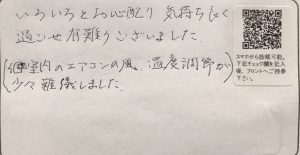 いろいろとお心配り 気持ち良く
過ごせ有難うございました
(但室内のエアコンの風、温度調節が
少々難儀しました。)
スマホから投稿可能。
下記チェック欄を記入
後、フロントへご持参
下さい。